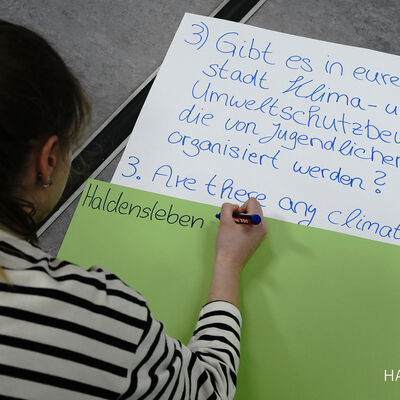 3) Gibt es in eure
stadt Klima- u
Umweltschutzbe
die von Jugendlichen
organisiert werden?
3. Are there any climat
Haldensleben
HA